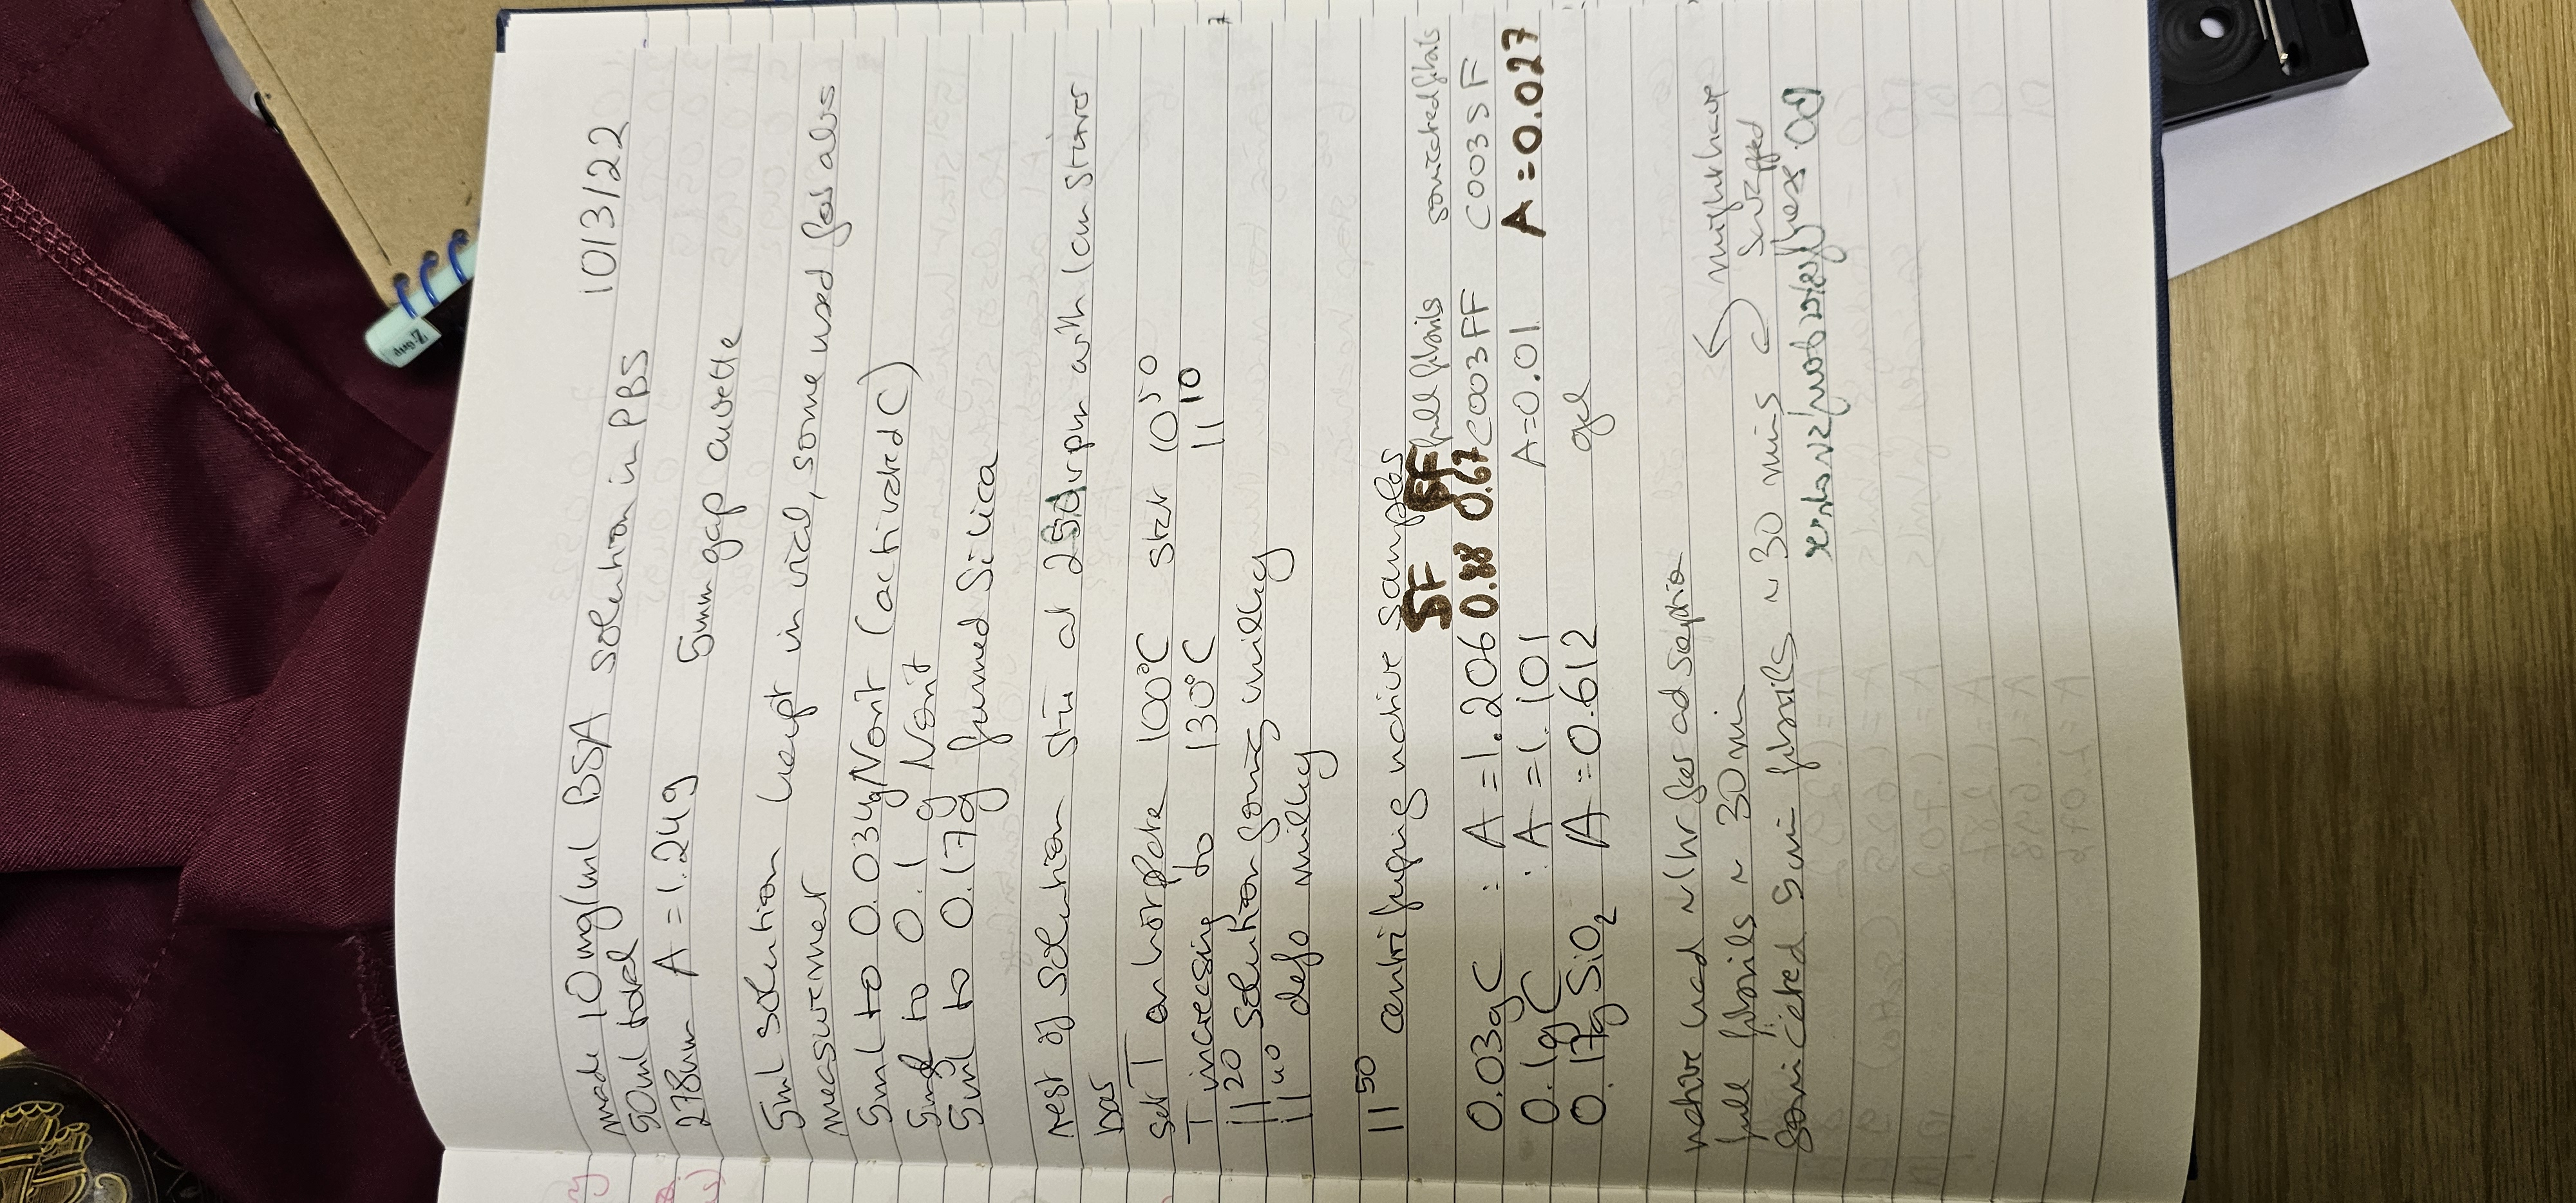 10/3/22
made 10mg/ml BSA solution in PBS
50ml total
278nm A = 1.249 5mm gap cuvette
5ml solution kept in vial, some used for abs
measurement
5ml to 0.034g Norit (activated C)
5ml to 0.1g Norit
5ml to 0.17g fumed silica
rest of solution stir at 250rpm with 1cm stirrer
bar
set T on hotplate 100°C start 10⁵⁰
T increasing to 130°C 11¹⁰
11²⁰ solution going milky
11⁴⁰ defo milky
11⁵⁰ centrifuging native samples
SF full fibrils sonicated fibrils
0.03gC : A = 1.206 0.88 0.67 C003FF C003SF
0.1gC : A = 1.101 A=0.01 A=0.027
0.17g SiO₂ A = 0.612 gel
native had ~1hr for adsorption
full fibrils ~ 30min might have
sonicated 5min fibrils ~30 mins swapped